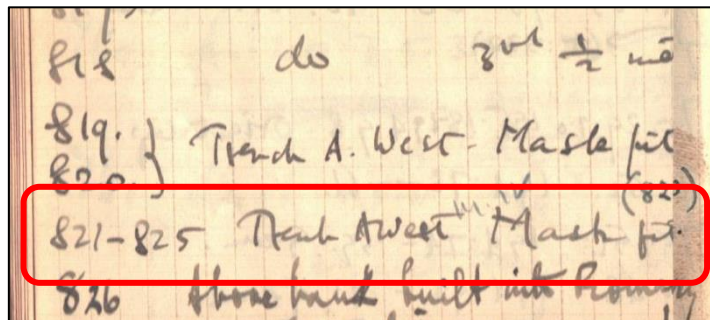 818 do 3rd ½ m
819. } Trench A. West - Mask pit
820. } (822)
821-825 Trench A West Mask pit.
826 Above bank built into